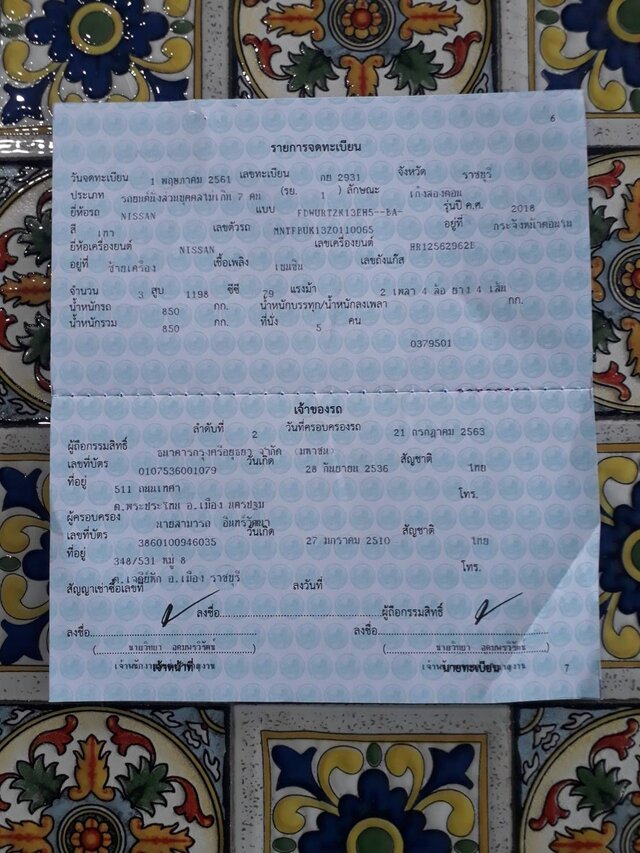 6
รายการจดทะเบียน
วันจดทะเบียน 1 พฤษภาคม 2561 เลขทะเบียน กย 2931 จังหวัด ราชบุรี
ประเภท รถยนต์นั่งส่วนบุคคลไม่เกิน 7 คน (รย. 1 ) ลักษณะ เก๋งสองตอน
ยี่ห้อรถ NISSAN แบบ FDWURTZK13EHS--BA- รุ่นปี ค.ศ. 2018
สี เทา เลขตัวรถ MNTFBUK13Z0110065 อยู่ที่ กระจังหน้าคอนรม
ยี่ห้อเครื่องยนต์ NISSAN เลขเครื่องยนต์ HR12562962E
อยู่ที่ ซ้ายเครื่อง เชื้อเพลิง เบนซิน เลขถังแก๊ส
จำนวน 3 สูบ 1198 ซีซี 79 แรงม้า 2 เพลา 4 ล้อ ยาง 4 เส้น
น้ำหนักรถ 850 กก. น้ำหนักบรรทุก/น้ำหนักลงเพลา กก.
น้ำหนักรวม 850 กก. ที่นั่ง 5 คน
0379501
เจ้าของรถ
ลำดับที่ 2 วันที่ครอบครองรถ 21 กรกฎาคม 2563
ผู้ถือกรรมสิทธิ์ ธนาคารกรุงศรีอยุธยา จำกัด (มหาชน)
เลขที่บัตร 0107536001079 วันเกิด 28 กันยายน 2536 สัญชาติ ไทย
ที่อยู่ 511 ถนนเทศา โทร.
ต.พระประโทน อ.เมือง นครปฐม
ผู้ครอบครอง นายสามารถ อินทร์วัฒนา
เลขที่บัตร 3860100946035 วันเกิด 27 มกราคม 2510 สัญชาติ ไทย
ที่อยู่ 348/531 หมู่ 8 โทร.
ต.เจดีย์หัก อ.เมือง ราชบุรี
สัญญาเช่าซื้อเลขที่ ลงวันที่
ลงชื่อ ผู้ถือกรรมสิทธิ์
ลงชื่อ ลงชื่อ
( นายวิทยา อุดมพรวิรัตน์ ) ( นายวิทยา อุดมพรวิรัตน์ )
เจ้าหน้าที่ นายทะเบียน 7